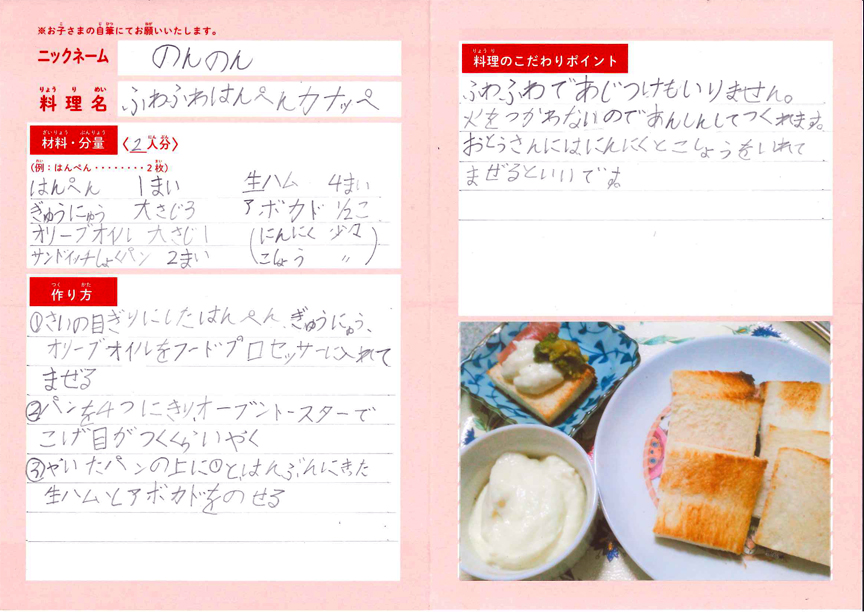 ※お子さまの自筆にてお願いいたします。
ニックネーム のんのん
料理名 ふわふわはんぺんカナッペ
材料・分量 〈2人分〉
(例：はんぺん・・・・・・・・2枚)
はんぺん 1まい 生ハム 4まい
ぎゅうにゅう 大さじ3 アボカド 1/2こ
オリーブオイル 大さじ1 (にんにく 少々
サンドイッチしょくパン 2まい こしょう 〃)
作り方
①さいの目ぎりにしたはんぺん、ぎゅうにゅう、
オリーブオイルをフードプロセッサーに入れて
まぜる
②パンを4つにきり、オーブントースターで
こげ目がつくくらいやく
③やいたパンの上に①と、はんぶんにきった
生ハムとアボカドをのせる
料理のこだわりポイント
ふわふわであじつけもいりません。
火をつかわないのであんしんしてつくれます。
おとうさんにはにんにくとこしょうをいれて
まぜるといいです。